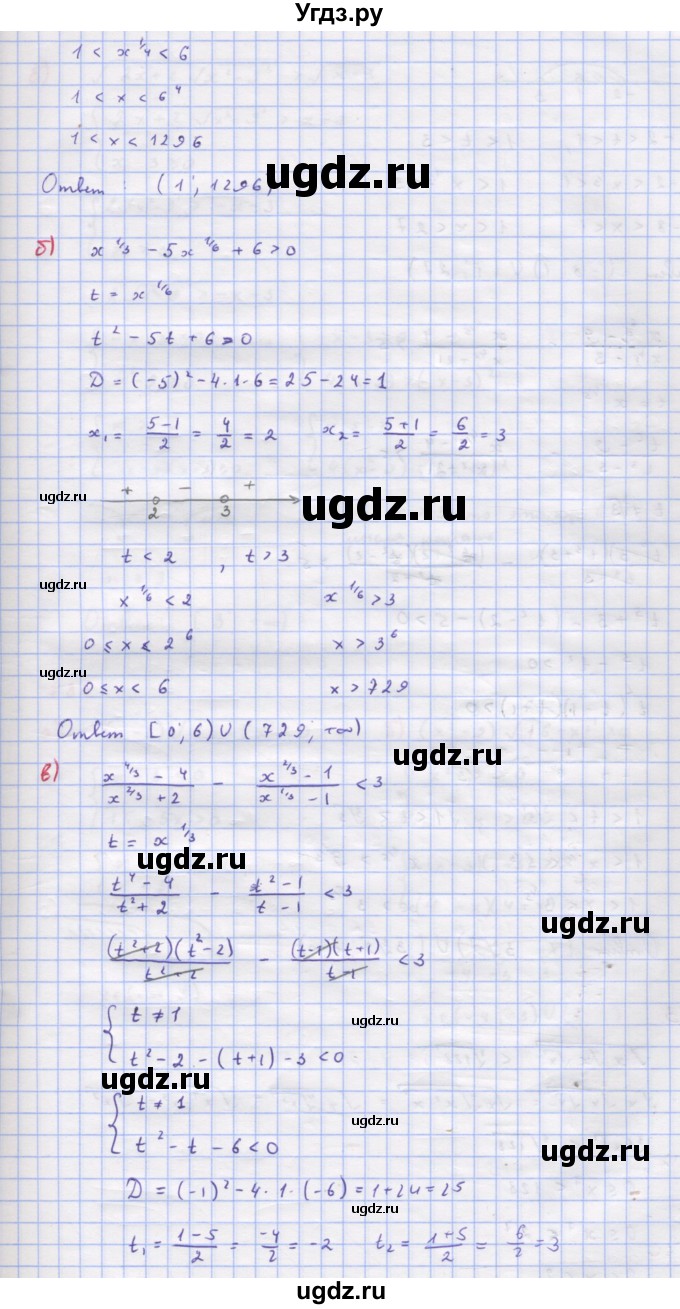 Угдз.ру
1 < x^{1/4} < 6
1 < x < 6^4
1 < x < 1296
Ответ : (1; 1296)
ugdz.ru
б) x^{1/3} - 5x^{1/6} + 6 > 0
t = x^{1/6}
t^2 - 5t + 6 > 0
D = (-5)^2 - 4·1·6 = 25 - 24 = 1
x_1 = \frac{5-1}{2} = \frac{4}{2} = 2 x_2 = \frac{5+1}{2} = \frac{6}{2} = 3
ugdz.ru + - +
2 3
ugdz.ru
t < 2 , t > 3
ugdz.ru
x^{1/6} < 2 x^{1/6} > 3
0 ≤ x < 2^6 x > 3^6
ugdz.ru
0 ≤ x < 6 x > 729
Ответ [0; 6) ∪ (729; +∞)
ugdz.ru
в) \frac{x^{4/3} - 4}{x^{2/3} + 2} - \frac{x^{2/3} - 1}{x^{1/3} - 1} < 3
t = x^{1/3}
ugdz.ru
\frac{t^4 - 4}{t^2 + 2} - \frac{t^2 - 1}{t - 1} < 3
ugdz.ru
\frac{(t^2+2)(t^2-2)}{t^2+2} - \frac{(t-1)(t+1)}{t-1} < 3
t ≠ 1
ugdz.ru
t^2 - 2 - (t+1) - 3 < 0
ugdz.ru
t ≠ 1
ugdz.ru
t^2 - t - 6 < 0
ugdz.ru
D = (-1)^2 - 4·1·(-6) = 1 + 24 = 25
ugdz.ru
t_1 = \frac{1-5}{2} = \frac{-4}{2} = -2 t_2 = \frac{1+5}{2} = \frac{6}{2} = 3
ugdz.ru